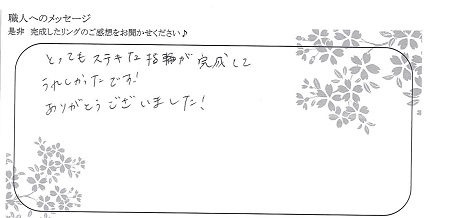 職人へのメッセージ
是非 完成したリングのご感想をお聞かせください♪
とってもステキな指輪が完成して
うれしかったです!
ありがとうございました!